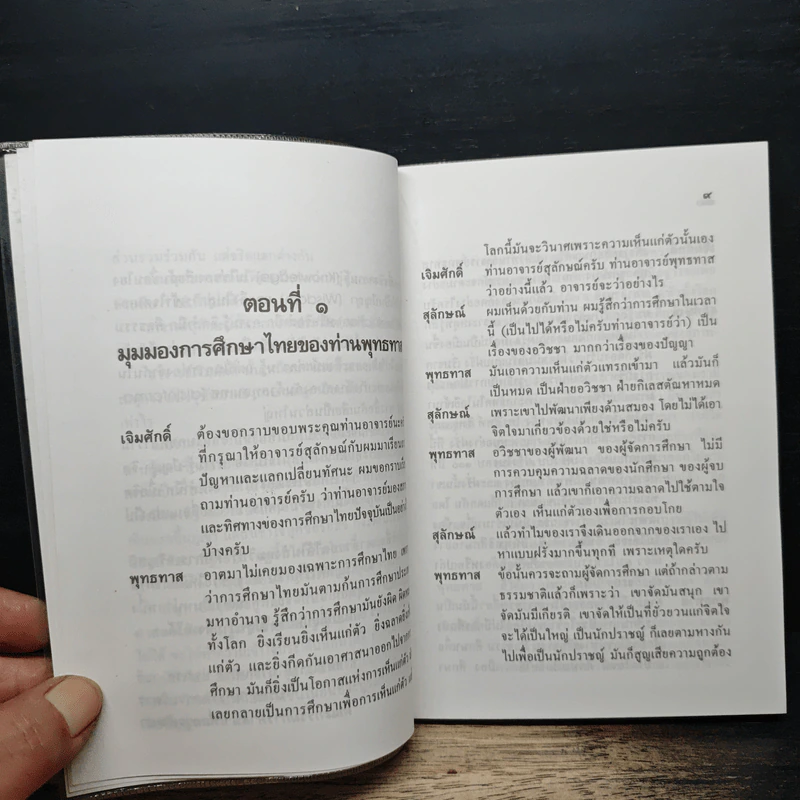 ตอนที่ ๑
มุมมองการศึกษาไทยของท่านพุทธทาส
เจิมศักดิ์ ต้องขอกราบขอบพระคุณท่านอาจารย์นะครับ
ที่กรุณาให้อาจารย์สุลักษณ์กับผมมาเรียน
ปัญหาและแลกเปลี่ยนทัศนะ ผมขอกราบเรียน
ถามท่านอาจารย์ครับ ว่าท่านอาจารย์มอง
และทิศทางของการศึกษาไทยปัจจุบันเป็นอย่างไร
บ้างครับ
พุทธทาส อาตมาไม่เคยมองเฉพาะการศึกษาไทย
ว่าการศึกษาไทยมันตามก้นการศึกษา
มหาอำนาจ รู้สึกว่าการศึกษามันยังผิด
ทั้งโลก ยิ่งเรียนยิ่งเห็นแก่ตัว ยิ่งฉลาด
แก่ตัว และยิ่งกีดกันเอาศาสนาออกไป
ศึกษา มันก็ยิ่งเป็นโอกาสแห่งการเห็นแก่ตัว
เลยกลายเป็นการศึกษาเพื่อการเห็นแก่ตัว
๙
โลกนี้มันจะวินาศเพราะความเห็นแก่ตัวนั้นเอง
เจิมศักดิ์ ท่านอาจารย์สุลักษณ์ครับ ท่านอาจารย์พุทธทาส
ว่าอย่างนี้แล้ว อาจารย์จะว่าอย่างไร
สุลักษณ์ ผมเห็นด้วยกับท่าน ผมรู้สึกว่าการศึกษาในเวลา
นี้ (เป็นไปได้หรือไม่ครับท่านอาจารย์ว่า) เป็น
เรื่องของอวิชชา มากกว่าเรื่องของปัญญา
พุทธทาส มันเอาความเห็นแก่ตัวแทรกเข้ามา แล้วมันก็
เป็นหมด เป็นฝ่ายอวิชชา ฝ่ายกิเลสตัณหาหมด
สุลักษณ์ เพราะเขาไปพัฒนาเพียงด้านสมอง โดยไม่ได้เอา
จิตใจมาเกี่ยวข้องด้วยใช่หรือไม่ครับ
พุทธทาส อวิชชาของผู้พัฒนา ของผู้จัดการศึกษา ไม่มี
การควบคุมความฉลาดของนักศึกษา ของผู้จบ
การศึกษา แล้วเขาก็เอาความฉลาดไปใช้ตามใจ
ตัวเอง เห็นแก่ตัวเองเพื่อการกอบโกย
สุลักษณ์ แล้วทำไมของเราจึงเดินออกจากของเราเอง ไป
หาแบบฝรั่งมากขึ้นทุกที เพราะเหตุใดครับ
พุทธทาส ข้อนั้นควรจะถามผู้จัดการศึกษา แต่ถ้ากล่าวตาม
ธรรมชาติแล้วก็เพราะว่า เขาจัดมันสนุก เขา
จัดมันมีเกียรติ เขาจัดให้เป็นที่ยั่วยวนแก่จิตใจ
จะได้เป็นใหญ่ เป็นนักปราชญ์ ก็เลยตามหางกัน
ไปเพื่อเป็นนักปราชญ์ มันก็สูญเสียความถูกต้อง